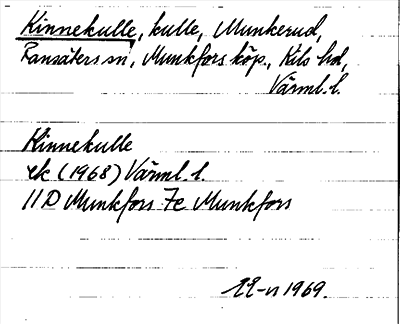 Kinnekulle, kulle, Munkerud,
Ransäters sn, Munkfors köp., Kils hd,
Värml. l.
Kinnekulle
ek (1968) Värml. l.
11D Munkfors 7c Munkfors
1969.